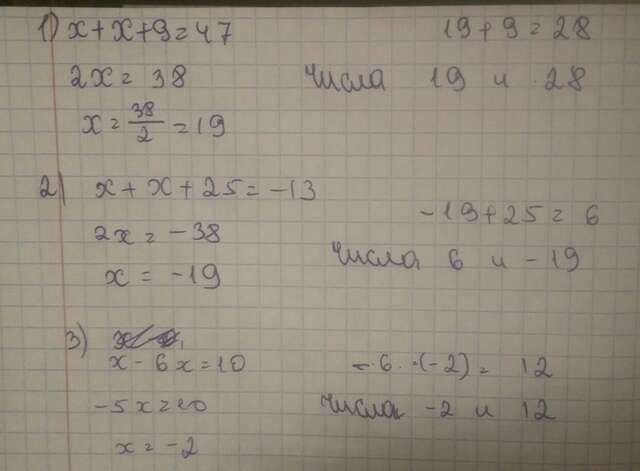 1) x+x+9=47 19+9=28
2x=38 числа 19 и 28
x=38/2=19
2) x+x+25=-13 -19+25=6
2x=-38 числа 6 и -19
x=-19
3)
x-6x=10 -6·(-2)=12
-5x=10 числа -2 и 12
x=-2